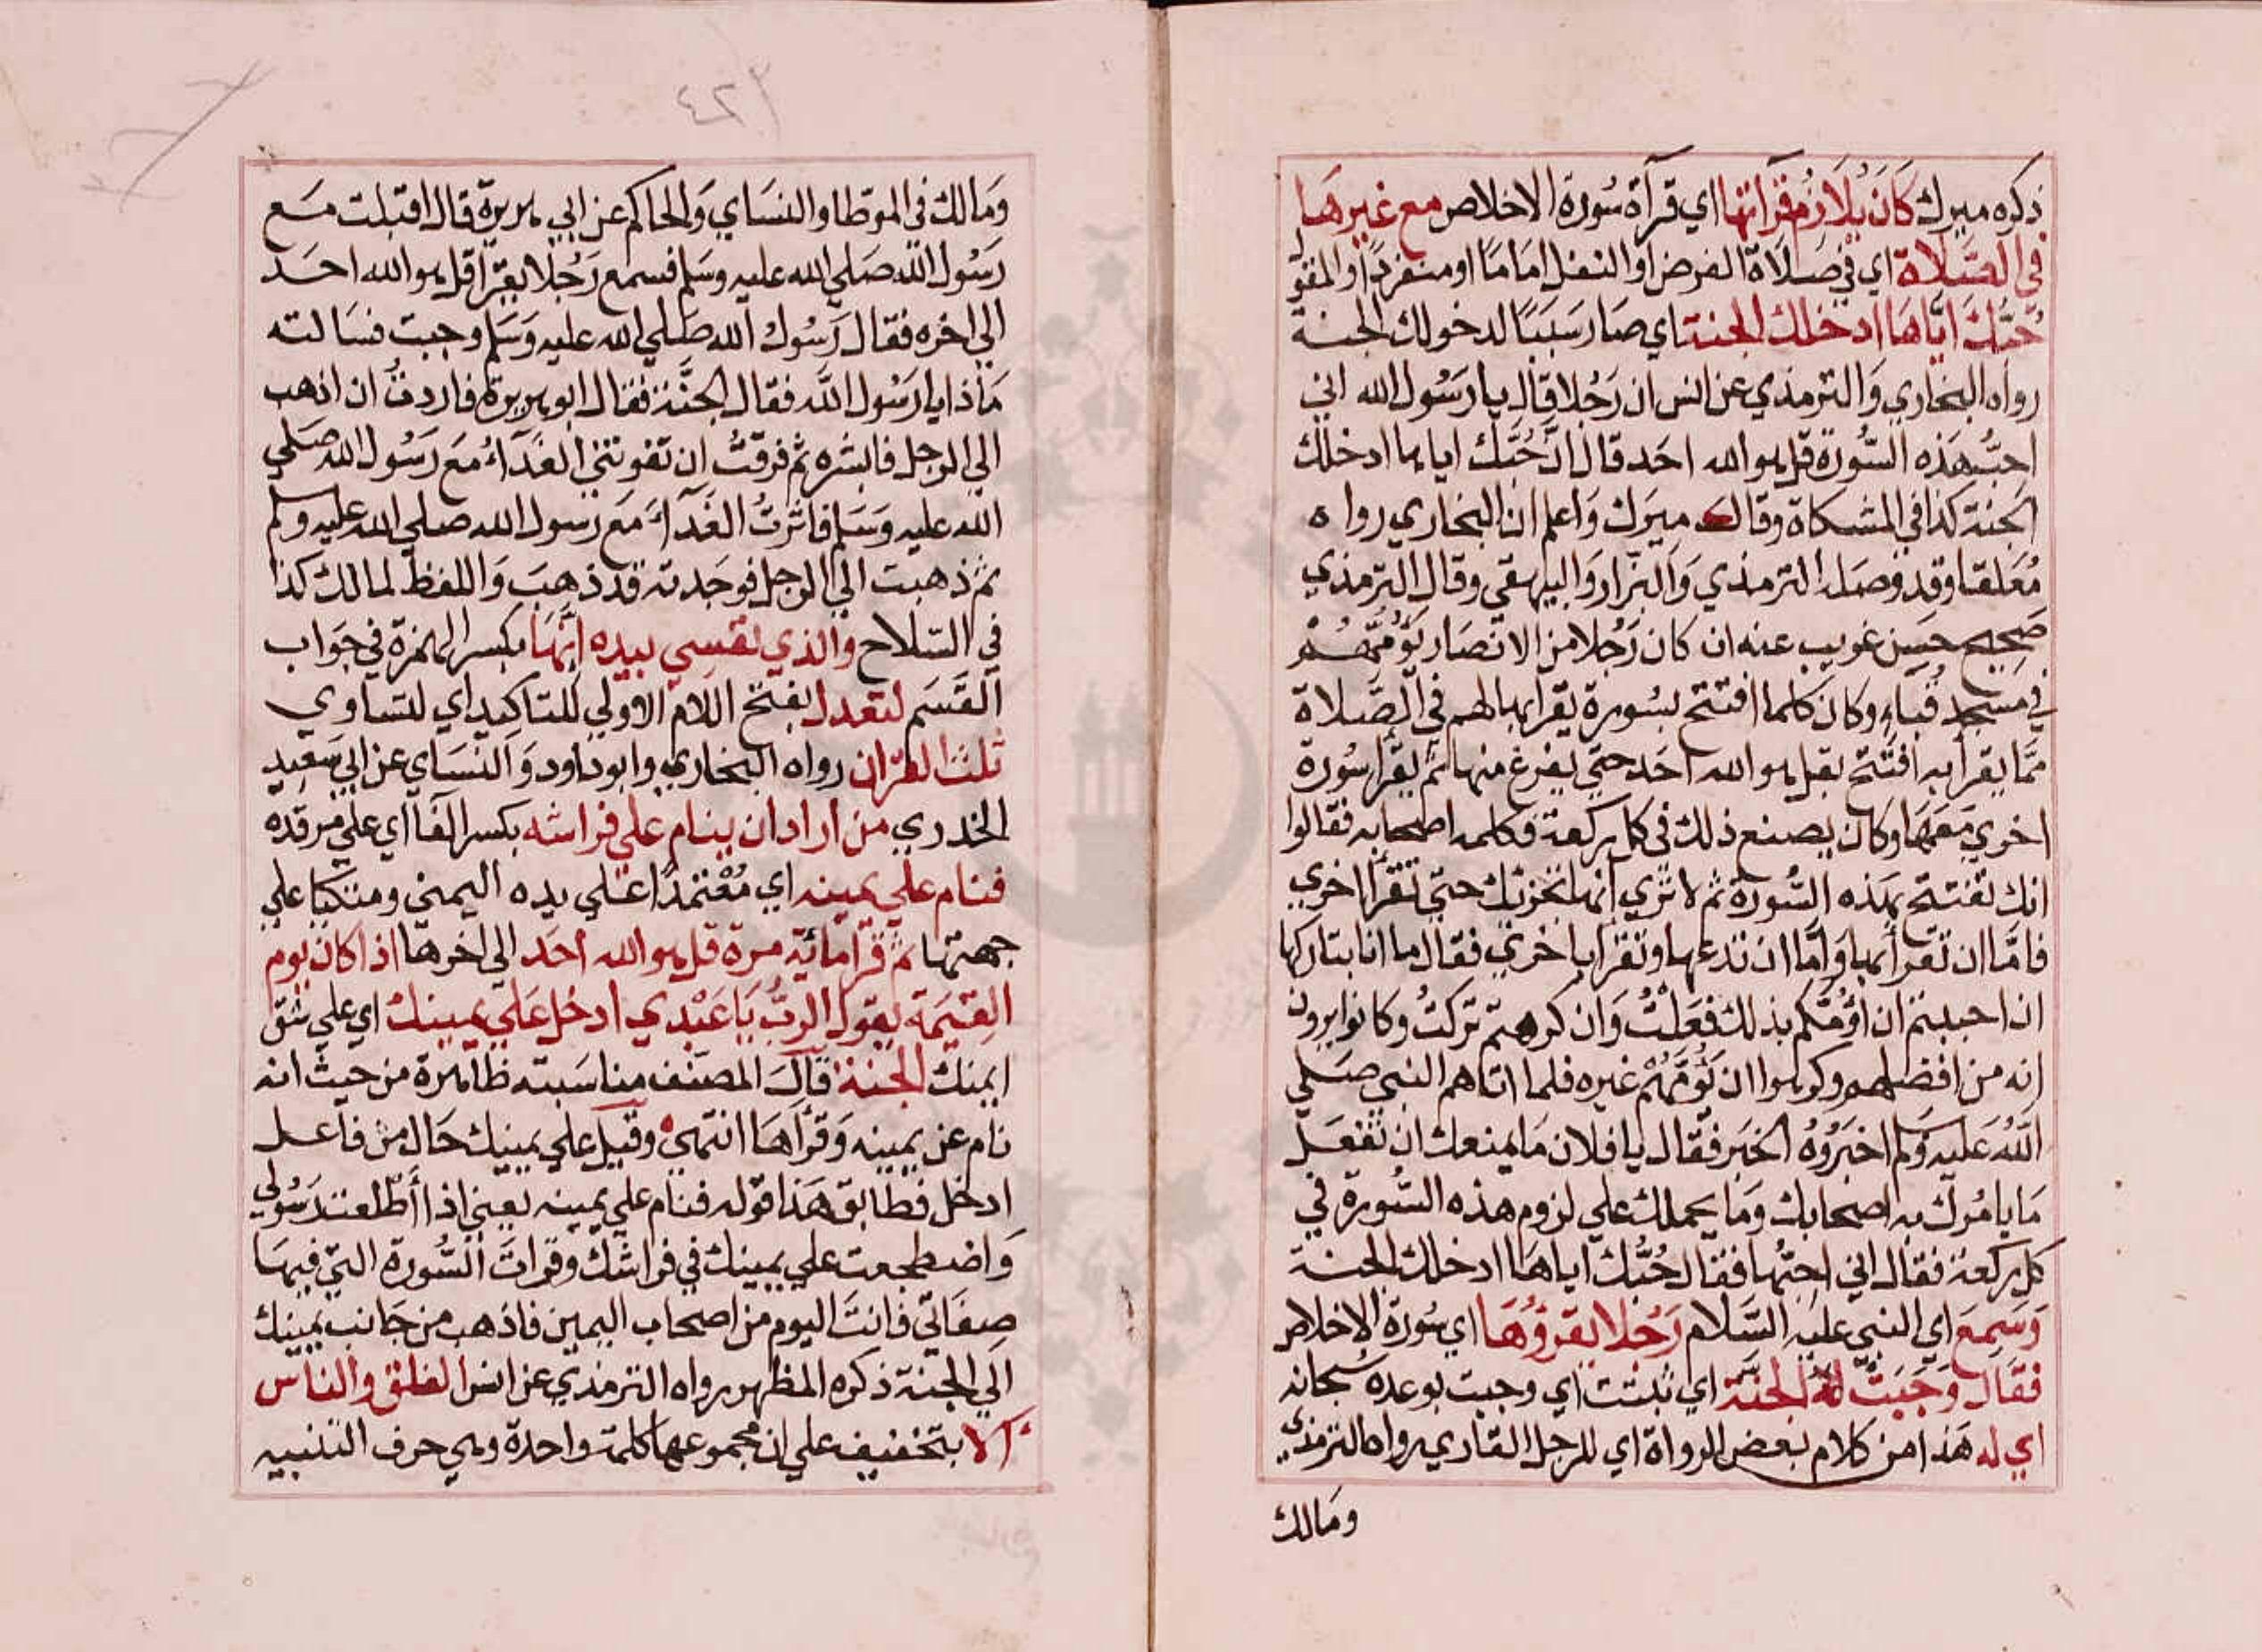 ذكره ميرك كَانَ يُلَازمُ قرَآتها اي قرآة سُورة الاخلاص مع غيرها
في الصَّلاة اي في صَلَاة الفرض او النفل امَامًا او منفردًا والمقو
حُبُّكَ ايَّاهَا ادخلك الجنة اي صَارسَببًا لدخولك الجنة
رواه البخاري وَالترمذي عن انس ان رَجُلا قال يا رَسُول الله اني
احبُّ هَذه السُّورة قل هو الله احَد قال اِنَّ حُبَّك اياها ادخلك
الجنة كذا في المشكاة وقال ميرَك وَاعلم ان البخاري رواه
مُعَلقا وقد وصَله الترمذي وَالبزار وَالبيهقي وقال الترمذي
صحيح حسَن غريب عنه ان كان رَجُلا من الانصَار يَؤُمُّهُمْ
في مَسْجِد قُباءٍ وكان كلما افتتح بسُورة يقرا بها لهم في الصَّلاة
ممَّا يقرأ به افتَتح بقل هو الله احَد حتي يفرغ منها ثم يقرأ سُورة
اخري مَعَهَا وكان يصنع ذلك في كل ركعة فكلمه اصحابه فقالوا
انك تفتتح بهَذه السُّورة ثم لا تري انها تجزئك حتي تقرأ اخري
فامَّا ان تقرأ بها وَامَّا ان تدعها وتقرا باخري فقال ما انا بتاركها
ان احببتم ان اؤُمَّكم بذلك فَعَلْتُ وَان كرهتم تركتُ وكانوا يرون
انه من افضلهم وكرهوا ان يَؤُمَّهُمْ غيره فلما اتاهم النبي صَلي
اللهُ عَليه وَسَلم اخبَرُوهُ الخبر فقال يا فلان مَا يمنعك ان تفعَل
مَا يامُرك به اصحابك وَمَا يحملك علي لزوم هذه السُّورة في
كل ركعة فقال اني احبّها فقال حُبُّك اياهَا ادخلك الجنة
وَسَمِعَ اي النبي عليه السَّلام رَجُلا يقرؤُهَا اي سُورة الاخلاص
فقال وَجَبَتْ لهُ الجنَّة اي ثبتت اي وجبت بوعده سبحانه
اي له هَذا من كلام بعض الرواة اي للرجل القاري رواه الترمذي
ومَالك
٤٢٢
وَمَالك في الموطا والنسَاي وَالحاكم عن ابي هريرة قال اقبلت مَع
رَسُول الله صَلي الله عليه وسَلم فسمع رَجُلا يقرَأ قل هو الله احَد
الي اخره فقال رَسُول الله صَلي الله عليه وَسَلم وجبت فسَالته
مَاذا يا رَسُول الله فقال الجنَّة فقال ابو هريرة فاردتُ ان اذهب
الي الرجل فابشره ثم فرقتُ ان تفوتني الغَدَآءُ مَعَ رَسُول الله صَلي
الله عليه وَسَلم فاثرتُ الغَدَآءَ مَعَ رسول الله صلي الله عليه وسلم
ثم ذهبت الي الرجل فوجَدته قد ذهَبَ وَاللفظ لمالك كذا
في السّلاح والذي نفسي بيده اِنَّهَا بكسر الهمزة في جوَاب
القَسَم لتعدل بفتح اللام الاولي للتاكيد اي لتساوي
ثلث القرآن رواه البخاري وابو داود وَالنسَاي عن ابي سَعِيد
الخدري من اراد ان ينام علي فراشه بكسر الفَا اي علي مرقده
فنام علي يمينه اي مُعْتمدًا عَلي يده اليمني ومتكيًا علي
جهتها ثم قرا مائة مرة قل هو الله احَد الي اخرها اذا كان يوم
القِيَمَة يقول الربُّ يَا عَبْدي ادخل عَلي يمينك اي علي شق
ايمنك الجنة قال المصنف مناسَبته ظاهرة من حيث انه
نام عن يمينه وَقرأهَا انتهي وقيل علي يمينك حَال من فاعل
ادخل فطابق هَذا قوله فنام علي يمينه يعني اذا أطلعت رَسُولي
وَاضطجعت علي يمينك في فراشك وقرات السُّورة التي فيهَا
صِفَاتي فانتَ اليوم من اصحاب اليمين فاذهب من جَانب يمينك
الي الجنة ذكره المظهر رواه الترمذي عن انس الفلق والناس
ألا بتخفيف علي ان مجموعها كلمة واحدة وهي حرف التنبيه